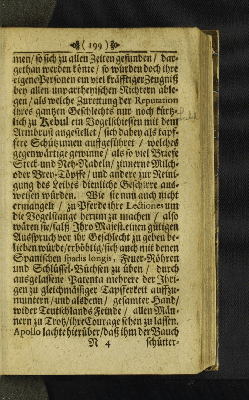 ( 199 )
men / so sich zu allen Zeiten gefunden / dar-
gethan werden könte / so würden doch ihre
eigene Personen ein viel kräfftiger Zeugniß
bey allen unpartheyischen Richtern able-
gen / als welche zu Rettung der Reputation
ihres gantzen Geschlechts nur noch kürtz-
lich zu Kebul ein Vogelschiessen mit dem
Armbrust angestellet / sich dabey als tapf-
fere Schützinnen auffgeführet / welches
gegenwärtige gewinne / als so viel Briefe
Steck- und Neh-Nadeln / zinnerne Milch-
oder Brey-Töpffe / und andere zur Reini-
gung des Leibes dienliche Geschirre aus-
weisen würden. Wie sie nun auch nicht
ermangeln / zu Pferde ihre Lectiones um
die Vogelstange herum zu machen / also
wären sie / falß Ihro Majest. einen gütigen
Ausspruch vor ihr Geschlecht zu geben be-
lieben würde / erböthig / sich auch mit denen
Spanischen spadis longis, Feuer-Röhren
und Schlüssel-Büchsen zu üben / durch
ausgelassene Patenta mehrere der Ihri-
gen zu gleichmäßiger Tapfferkeit auffzu-
muntern / und alsdenn / gesamter Hand /
wider Teutschlands Feinde / allen Män-
nern zu Trotz / ihre Courage sehen zu lassen.
Apollo lachte hierüber / daß ihm der Bauch
N 4 schütter-